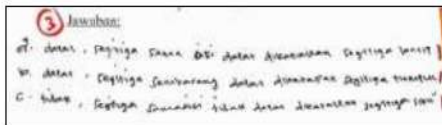 3 Jawaban:
a. dapat, segitiga sama sisi dapat dikatakan segitiga lancip
b. dapat, segitiga sembarang dapat dikatakan segitiga tumpul
c. tidak, segitiga samasisi tidak dapat dikatakan segitiga